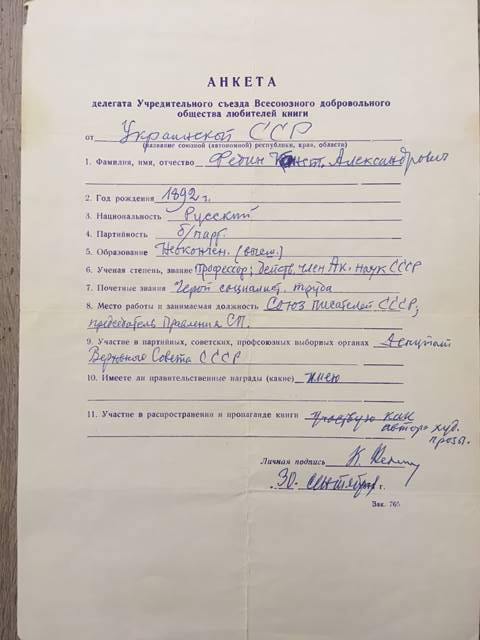 АНКЕТА
делегата Учредительного съезда Всесоюзного добровольного
общества любителей книги
от Украинской ССР
(название союзной (автономной) республики, края, области)
1. Фамилия, имя, отчество Федин Конст. Александрович
2. Год рождения 1892 г.
3. Национальность Русский
4. Партийность б/парт.
5. Образование Неокончен. (высш.)
6. Ученая степень, звание Профессор; действ. член Ак. наук СССР
7. Почетные звания Герой социалист. труда
8. Место работы и занимаемая должность Союз писателей СССР;
председатель Правления СП.
9. Участие в партийных, советских, профсоюзных выборных органах Депутат
Верховного Совета СССР
10. Имеете ли правительственные награды (какие) имею
11. Участие в распространении и пропаганде книги участвую как
автор худ.
прозы.
Личная подпись К. Федин
30. сентября г.
Зак. 765